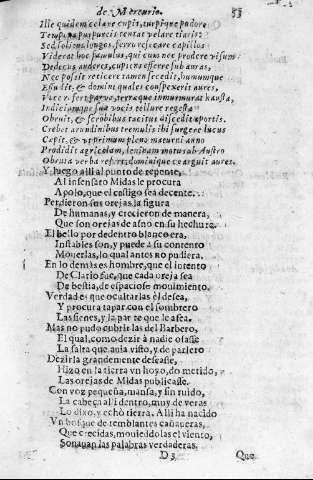 de Mercurio. 53
Ille quidem celare cupit, turpique pudore
Tempora purpureis tentat velare tiaris:
Sed solitus longos, ferro resecare capillos
Viderat hoc famulus, qui cum nec prodere visum
Dedecus auderet, cupiens efferre sub auras,
Nec possit reticere tamen secedit, humumque
Efodit, & domini quales conspexerit aures,
Voce refert parva, terraque inmurmurat hausta,
Indiciumque suæ vocis tellure regesta
Obruit, & scrobibus tacitus discedit opertis.
Creber arundinibus tremulis ibi surgere lucus
Capit, & ut primum pleno maturuit anno
Prodidit agricolam, leni nam motus ab Austro
Obruta verba refert, dominique coarguit aures.
Y luego alli al punto de repente,
Al insensato Midas le procura
Apolo, que el castigo sea decente.
Perdieron sus orejas la figura
De humanas, y crecieron de manera,
Que son orejas de asno en su hechura.
El bello por dedentro blanco era,
Instables son, y puede a su contento
Mouerlas, lo qual antes no pudiera.
En lo demàs es hombre, que el intento
De Clario fue, que cada oreja sea
De bestia, de espacioso mouimiento.
Verdad es que ocultarlas èl desea,
Y procura tapar con el sombrero
Las sienes, y la parte que le afea.
Mas no pudo cubrir las del Barbero,
El qual, como dezir à nadie osasse
La falta que auia visto, y de parlero
Dezirla grandemente deseasse,
Hizo en la tierra vn hoyo, do metido,
Las orejas de Midas publicasse.
Con voz pequeña, mansa, y sin ruido,
La cabeça alli dentro, muy de veras
Lo dixo, y echò tierra. Alli ha nacido
Vn bosque de temblantes cañaueras,
Que crecidas, mouiedolas el viento,
Sonauan las palabras verdaderas,
D 3 Que